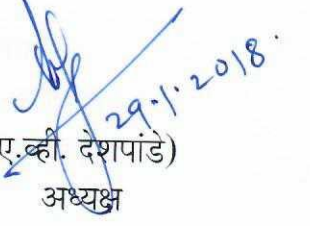 29.1.2018.
ए.व्ही. देशपांडे)
अध्यक्ष